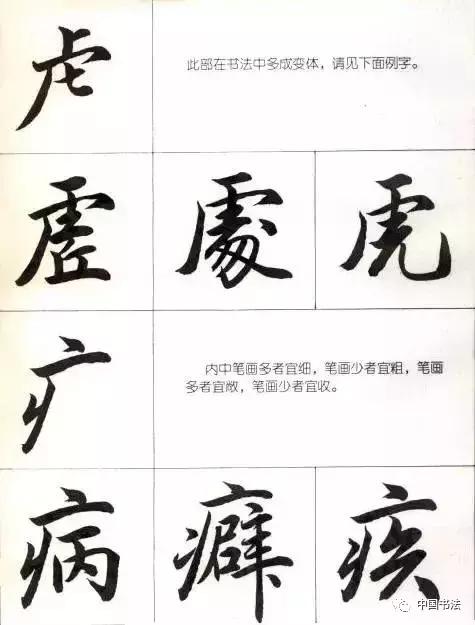 虍
此部在书法中多成变体，请见下面例字。
虚 處 虎
疒
内中笔画多者宜细，笔画少者宜粗，笔画
多者宜敞，笔画少者宜收。
病 癖 疾
中国书法